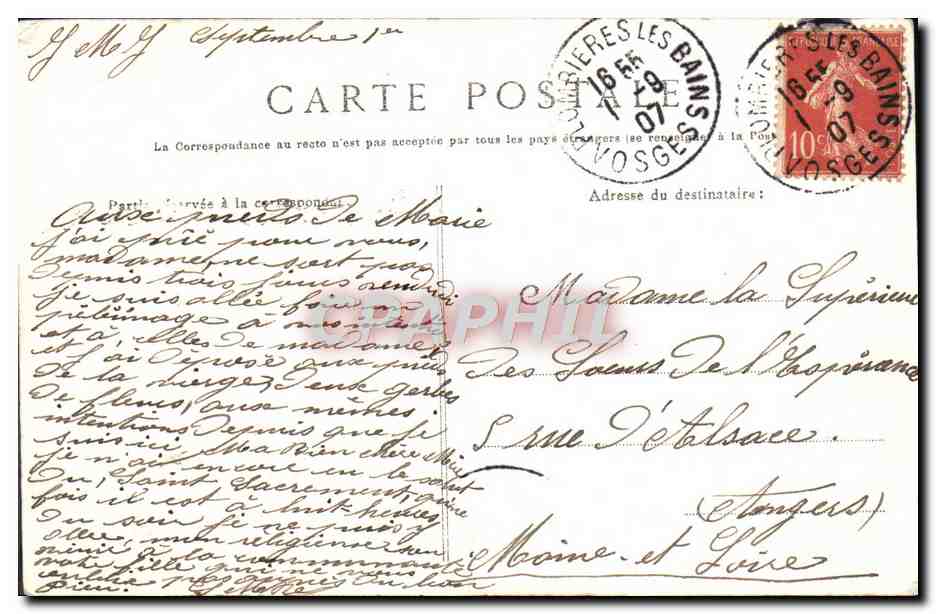 J M J Septembre 1er
CARTE POSTALE
La Correspondance au recto n'est pas acceptée par tous les pays étrangers (se renseigner à la Poste)
PLOMBIERES LES BAINS
16 55
1 -9
07
VOSGES
PLOMBIERES LES BAINS
16 55
1 -9
07
VOSGES
10
Adresse du destinataire :
Partie réservée à la correspondance
Aux pieds De Marie
j'ai prié pour vous,
madame, ne sort pas
Depuis trois jours vendredi
je suis allée faire un
pélérinage à
et à celles De madame
et j'ai Déposé aux pieds
De la vierge, Deux gerbes
De fleurs, aux mêmes
intentions Depuis que je
suis ici Ma Bien chère Mère
je n'ai encore eu le salut
Du Saint Sacrement, qu'une
fois il est à huit heures
Du soir je ne puis y
aller, mon religieuse
à la communauté
votre fille qui ne vous
pas
Dieu.
CPAPHIL
Madame la Supérieure
Des Soeurs De l'Espérance
5 rue D'Alsace.
(Angers)
Maine-et-Loire